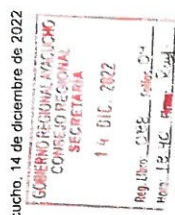 cucho, 14 de diciembre de 2022
GOBIERNO REGIONAL AYACUCHO
CONSEJO REGIONAL
SECRETARÍA
14 DIC. 2022
Reg. Libro: Folios: 04
Hora: Firma: